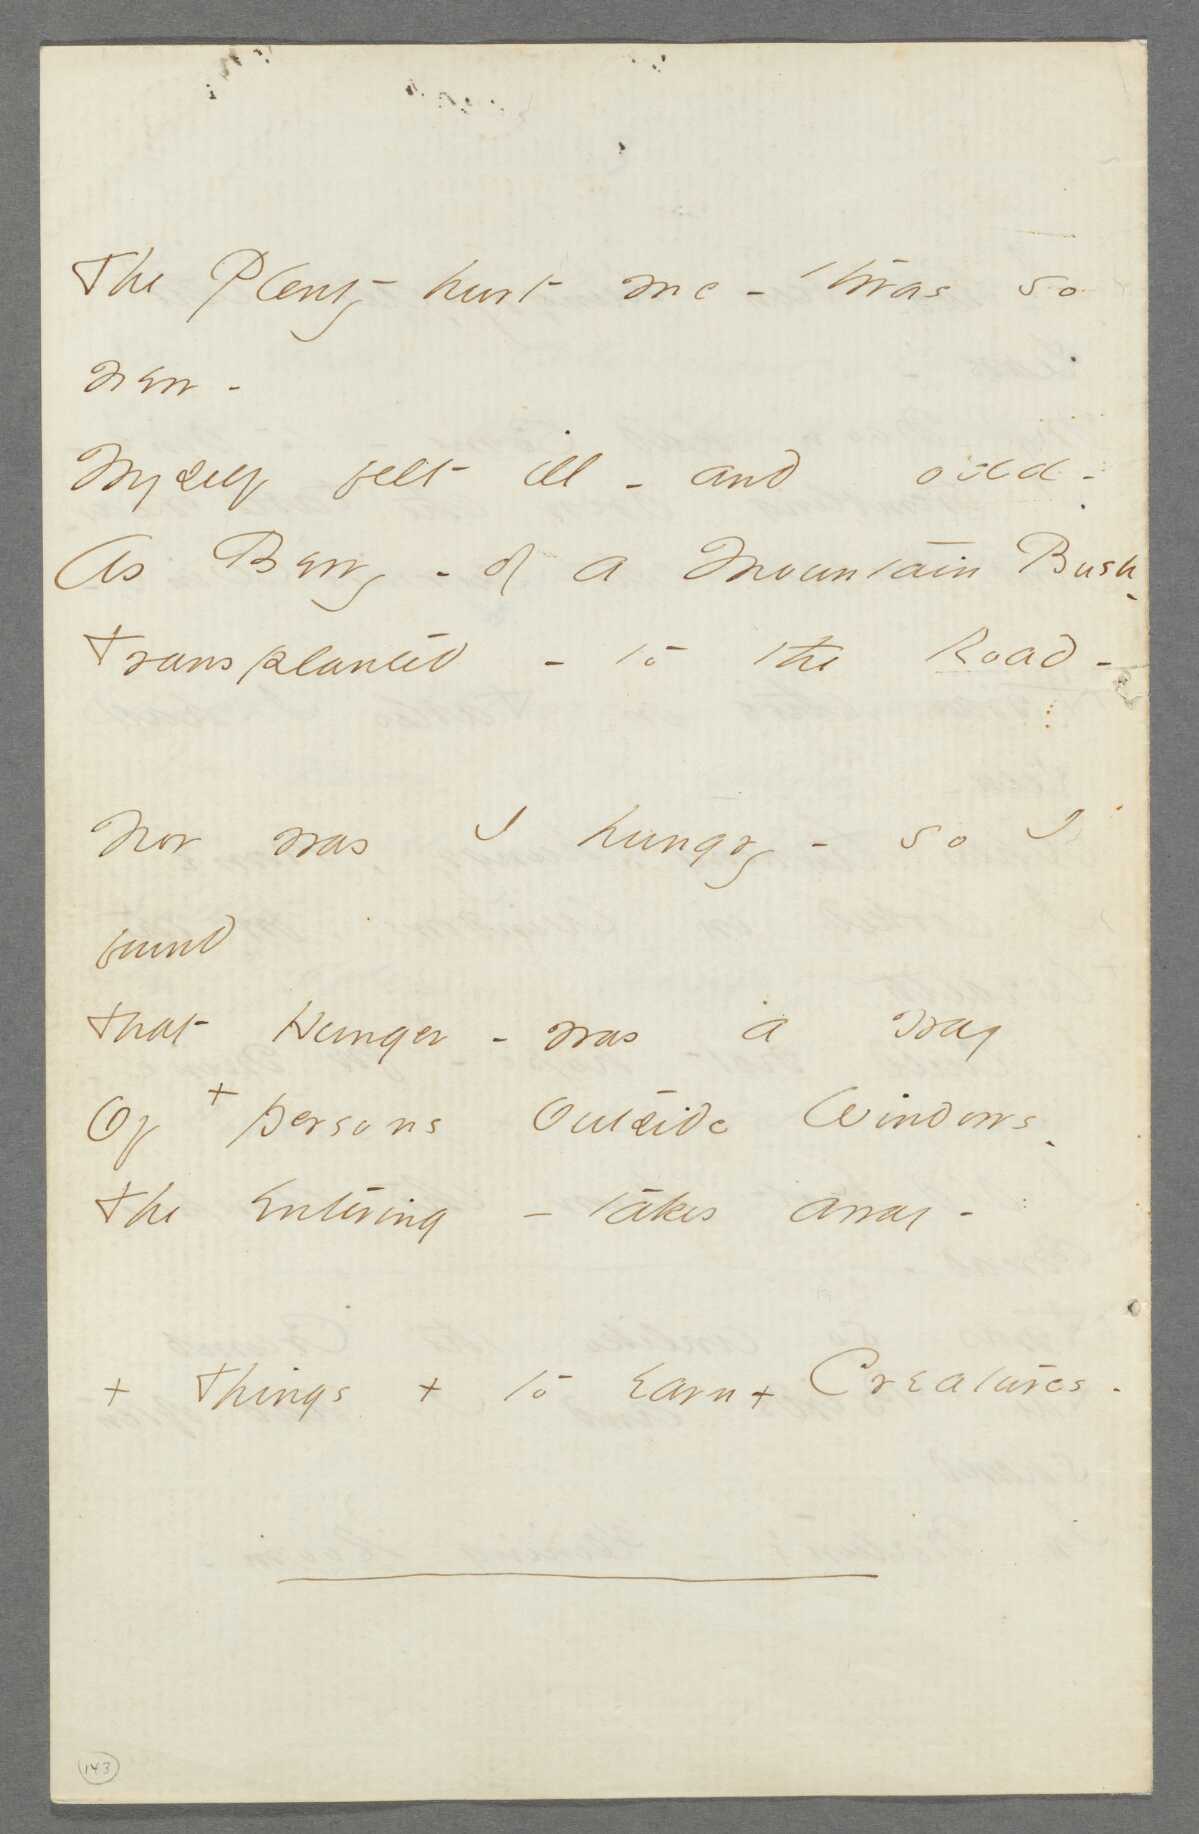 The Plenty hurt me - 'twas so
new -
Myself felt ill - and odd -
As Berry - of a Mountain Bush -
Transplanted - to the Road -
Nor was I hungry - so I
found
That Hunger - was a way
Of + persons Outside Windows -
The Entering - takes away -
+ Things + to Earn + Creatures -
143